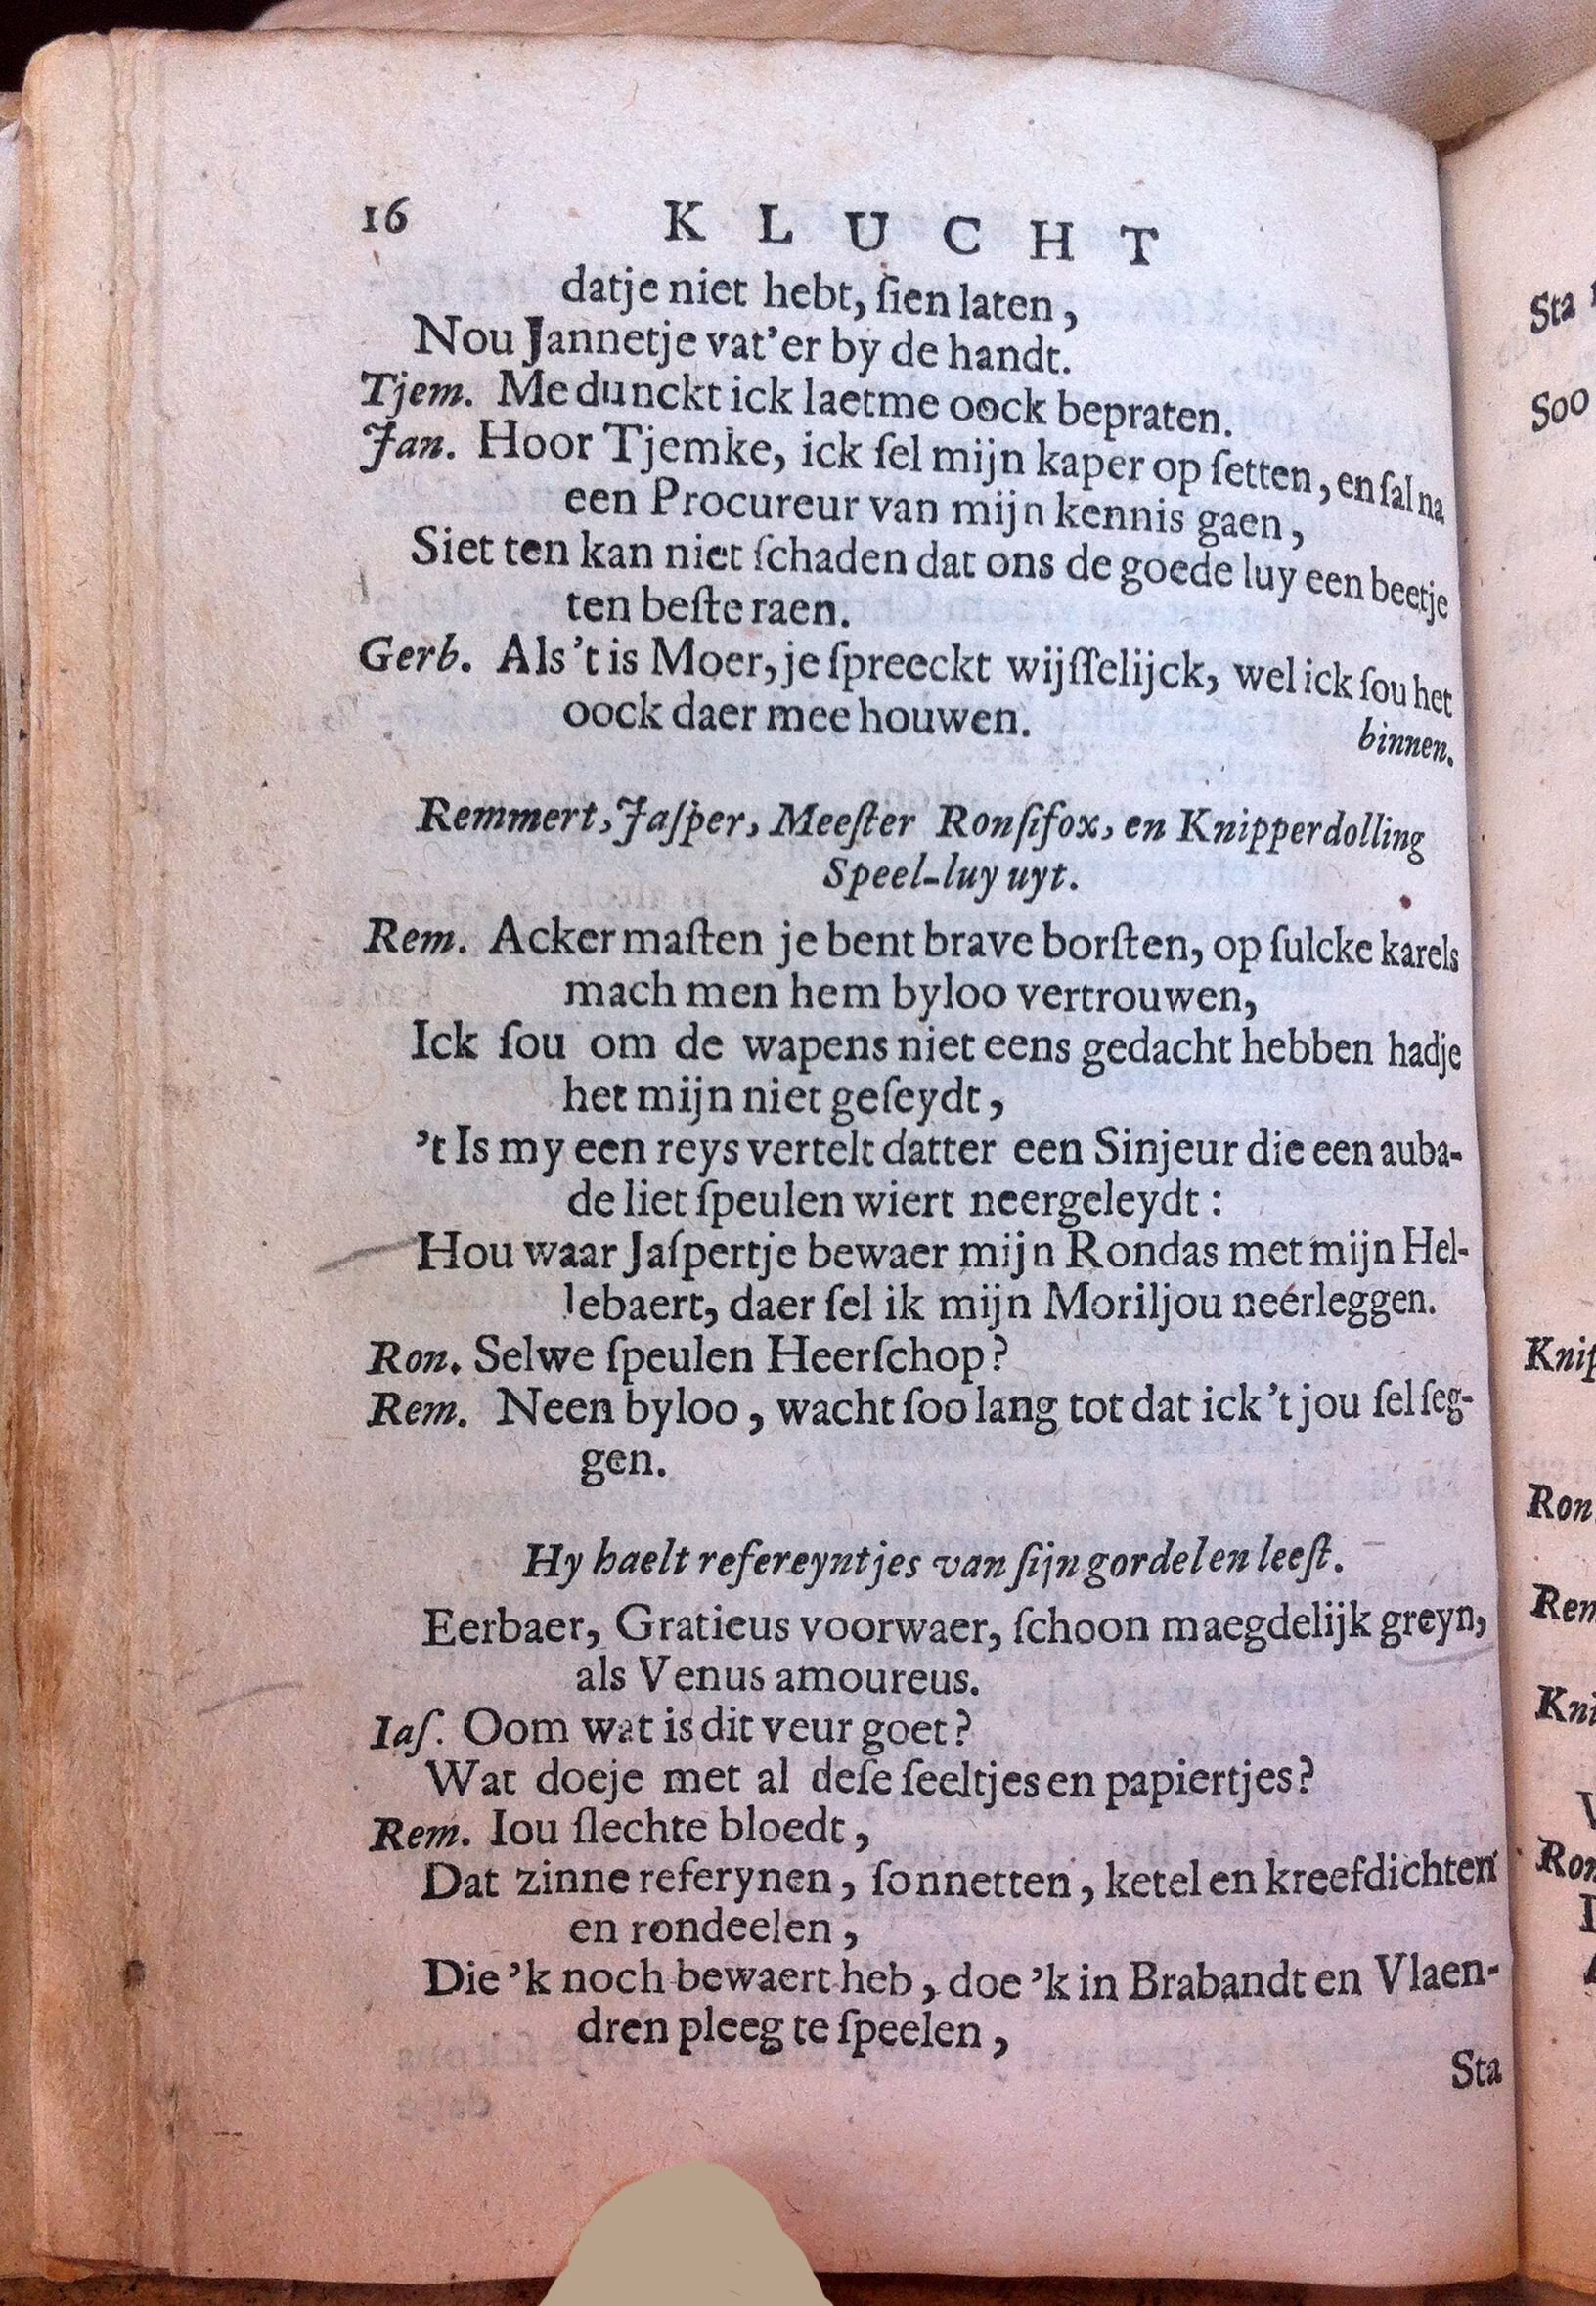 16 KLUCHT
datje niet hebt, ſien laten,
Nou Jannetje vat'er by de handt.
Tjem. Me dunckt ick laetme oock bepraten.
Jan. Hoor Tjemke, ick ſel mijn kaper op ſetten, en ſal na
een Procureur van mijn kennis gaen,
Siet ten kan niet ſchaden dat ons de goede luy een beetje
ten beſte raen.
Gerb. Als 't is Moer, je ſpreeckt wijſſelijck, wel ick ſou het
oock daer mee houwen.
binnen.
Remmert, Jaſper, Meeſter Ronſifox, en Knipperdolling
Speel-luy uyt.
Rem. Acker maſten je bent brave borſten, op ſulcke karels
mach men hem byloo vertrouwen,
Ick ſou om de wapens niet eens gedacht hebben hadje
het mijn niet geſeydt,
't Is my een reys vertelt datter een Sinjeur die een auba-
de liet ſpeulen wiert neergeleydt:
Hou waar Jaſpertje bewaer mijn Rondas met mijn Hel-
lebaert, daer ſel ik mijn Moriljou neérleggen.
Ron. Selwe ſpeulen Heerſchop?
Rem. Neen byloo, wacht ſoo lang tot dat ick 't jou ſel ſeg-
gen.
Hy haelt refereyntjes van ſijn gordel en leeſt.
Eerbaer, Gratieus voorwaer, ſchoon maegdelijk greyn,
als Venus amoureus.
Iaſ. Oom wat is dit veur goet?
Wat doeje met al deſe ſeeltjes en papiertjes?
Rem. Iou ſlechte bloedt,
Dat zinne referynen, ſonnetten, ketel en kreefdichten
en rondeelen,
Die 'k noch bewaert heb, doe 'k in Brabandt en Vlaen-
dren pleeg te ſpeelen,
Sta
Sta
Soo
Ron